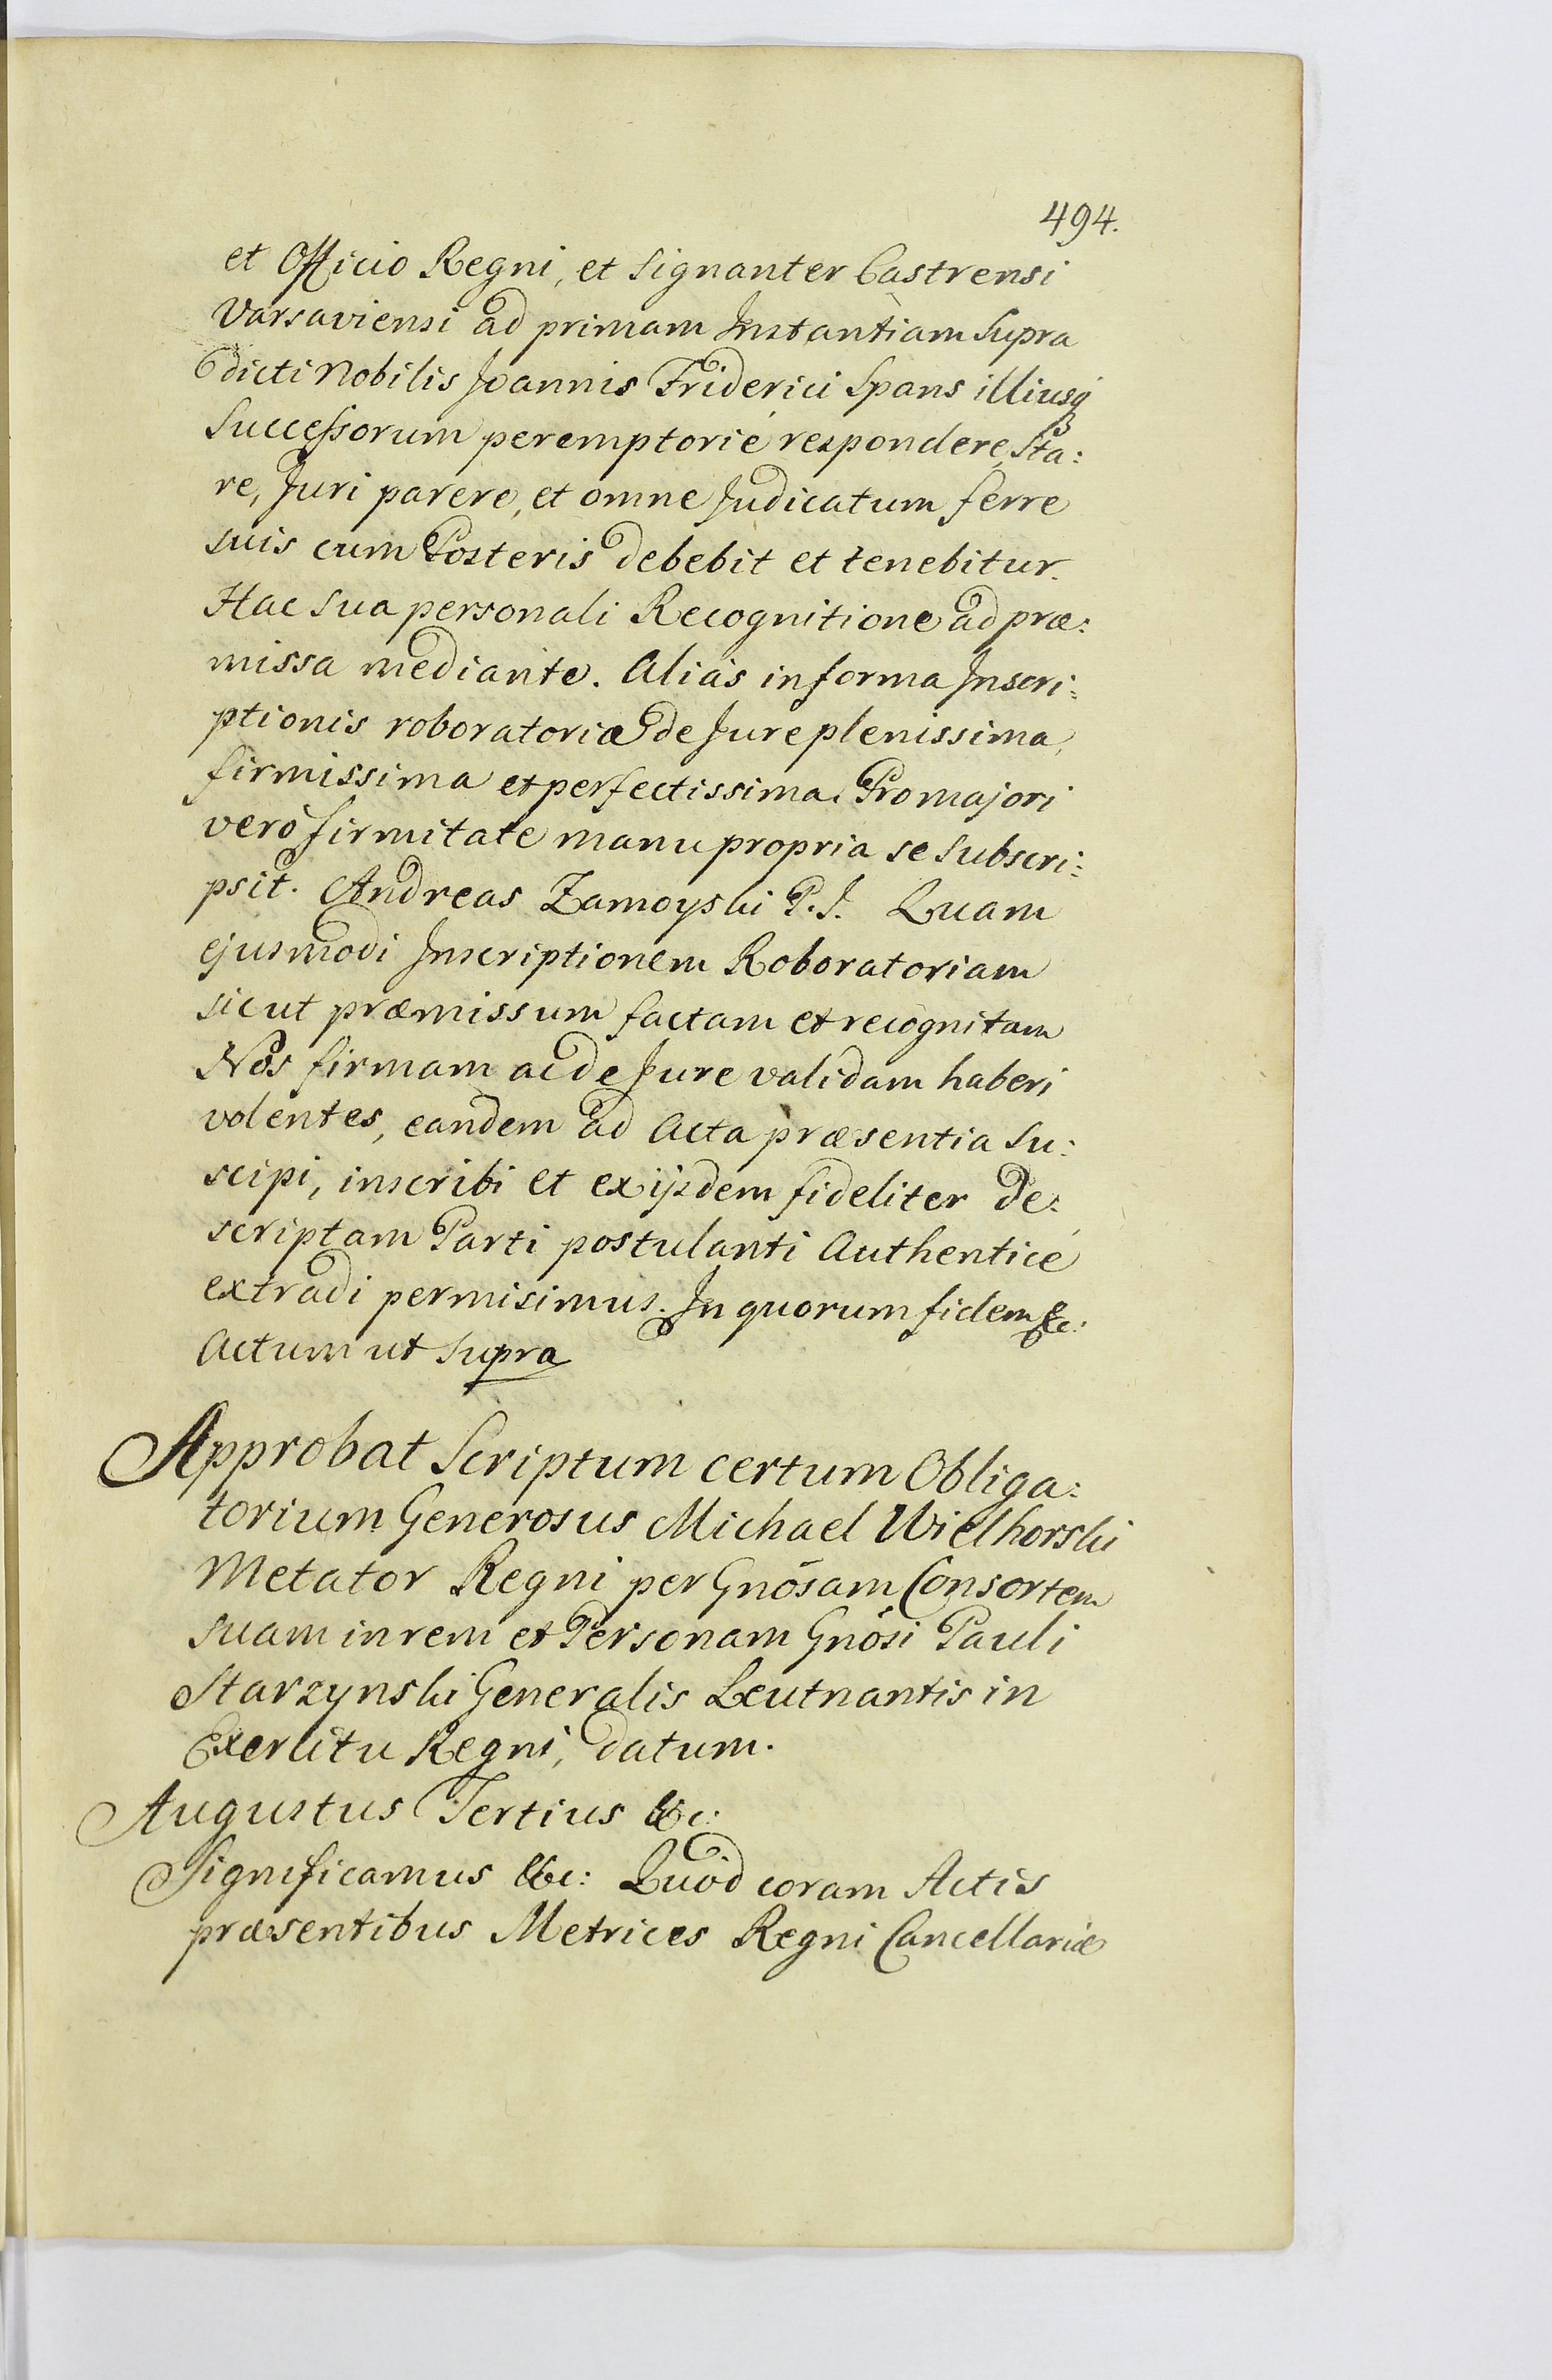 494.
et Officio Regni, et signanter Castrensi
Varsaviensi ad primam Instantiam supra
dicti Nobilis Joannis Friderici Spans illiusq
Successorum peremptorié respondere, sta:
re, Juri parere, et omne Judicatum ferre
suis cum Posteris debebit et tenebitur.
Hac sua personali Recognitione ad præ:
missa mediante. Aliàs in forma Inscri:
ptionis roboratoriæ de Jure plenissima,
firmissima et perfectissima. Pro majori
verò firmitate manu propria se subscri:
psit. Andreas Zamoyski P. J. Quam
ejusmodi Inscriptionem Roboratoriam
sicut præmissum factam et recognitam
Nos firmam ac de Jure validam haberi
volentes, eandem ad Acta præsentia su:
scipi, inscribi et ex ijsdem fideliter de:
scriptam Parti postulanti Authenticé
extradi permisimus. In quorum fidem &c:
Actum ut supra
Approbat Scriptum certum Obliga:
torium Generosus Michael Wielhorski
Metator Regni per Gnõsam Consortem
suam in rem et Personam Gnõsi Pauli
Starzynski Generalis Leutnantis in
Exercitu Regni, datum.
Augustus Tertius &c:
Significamus &c: Quòd coram Actis
præsentibus Metrices Regni Cancellariæ